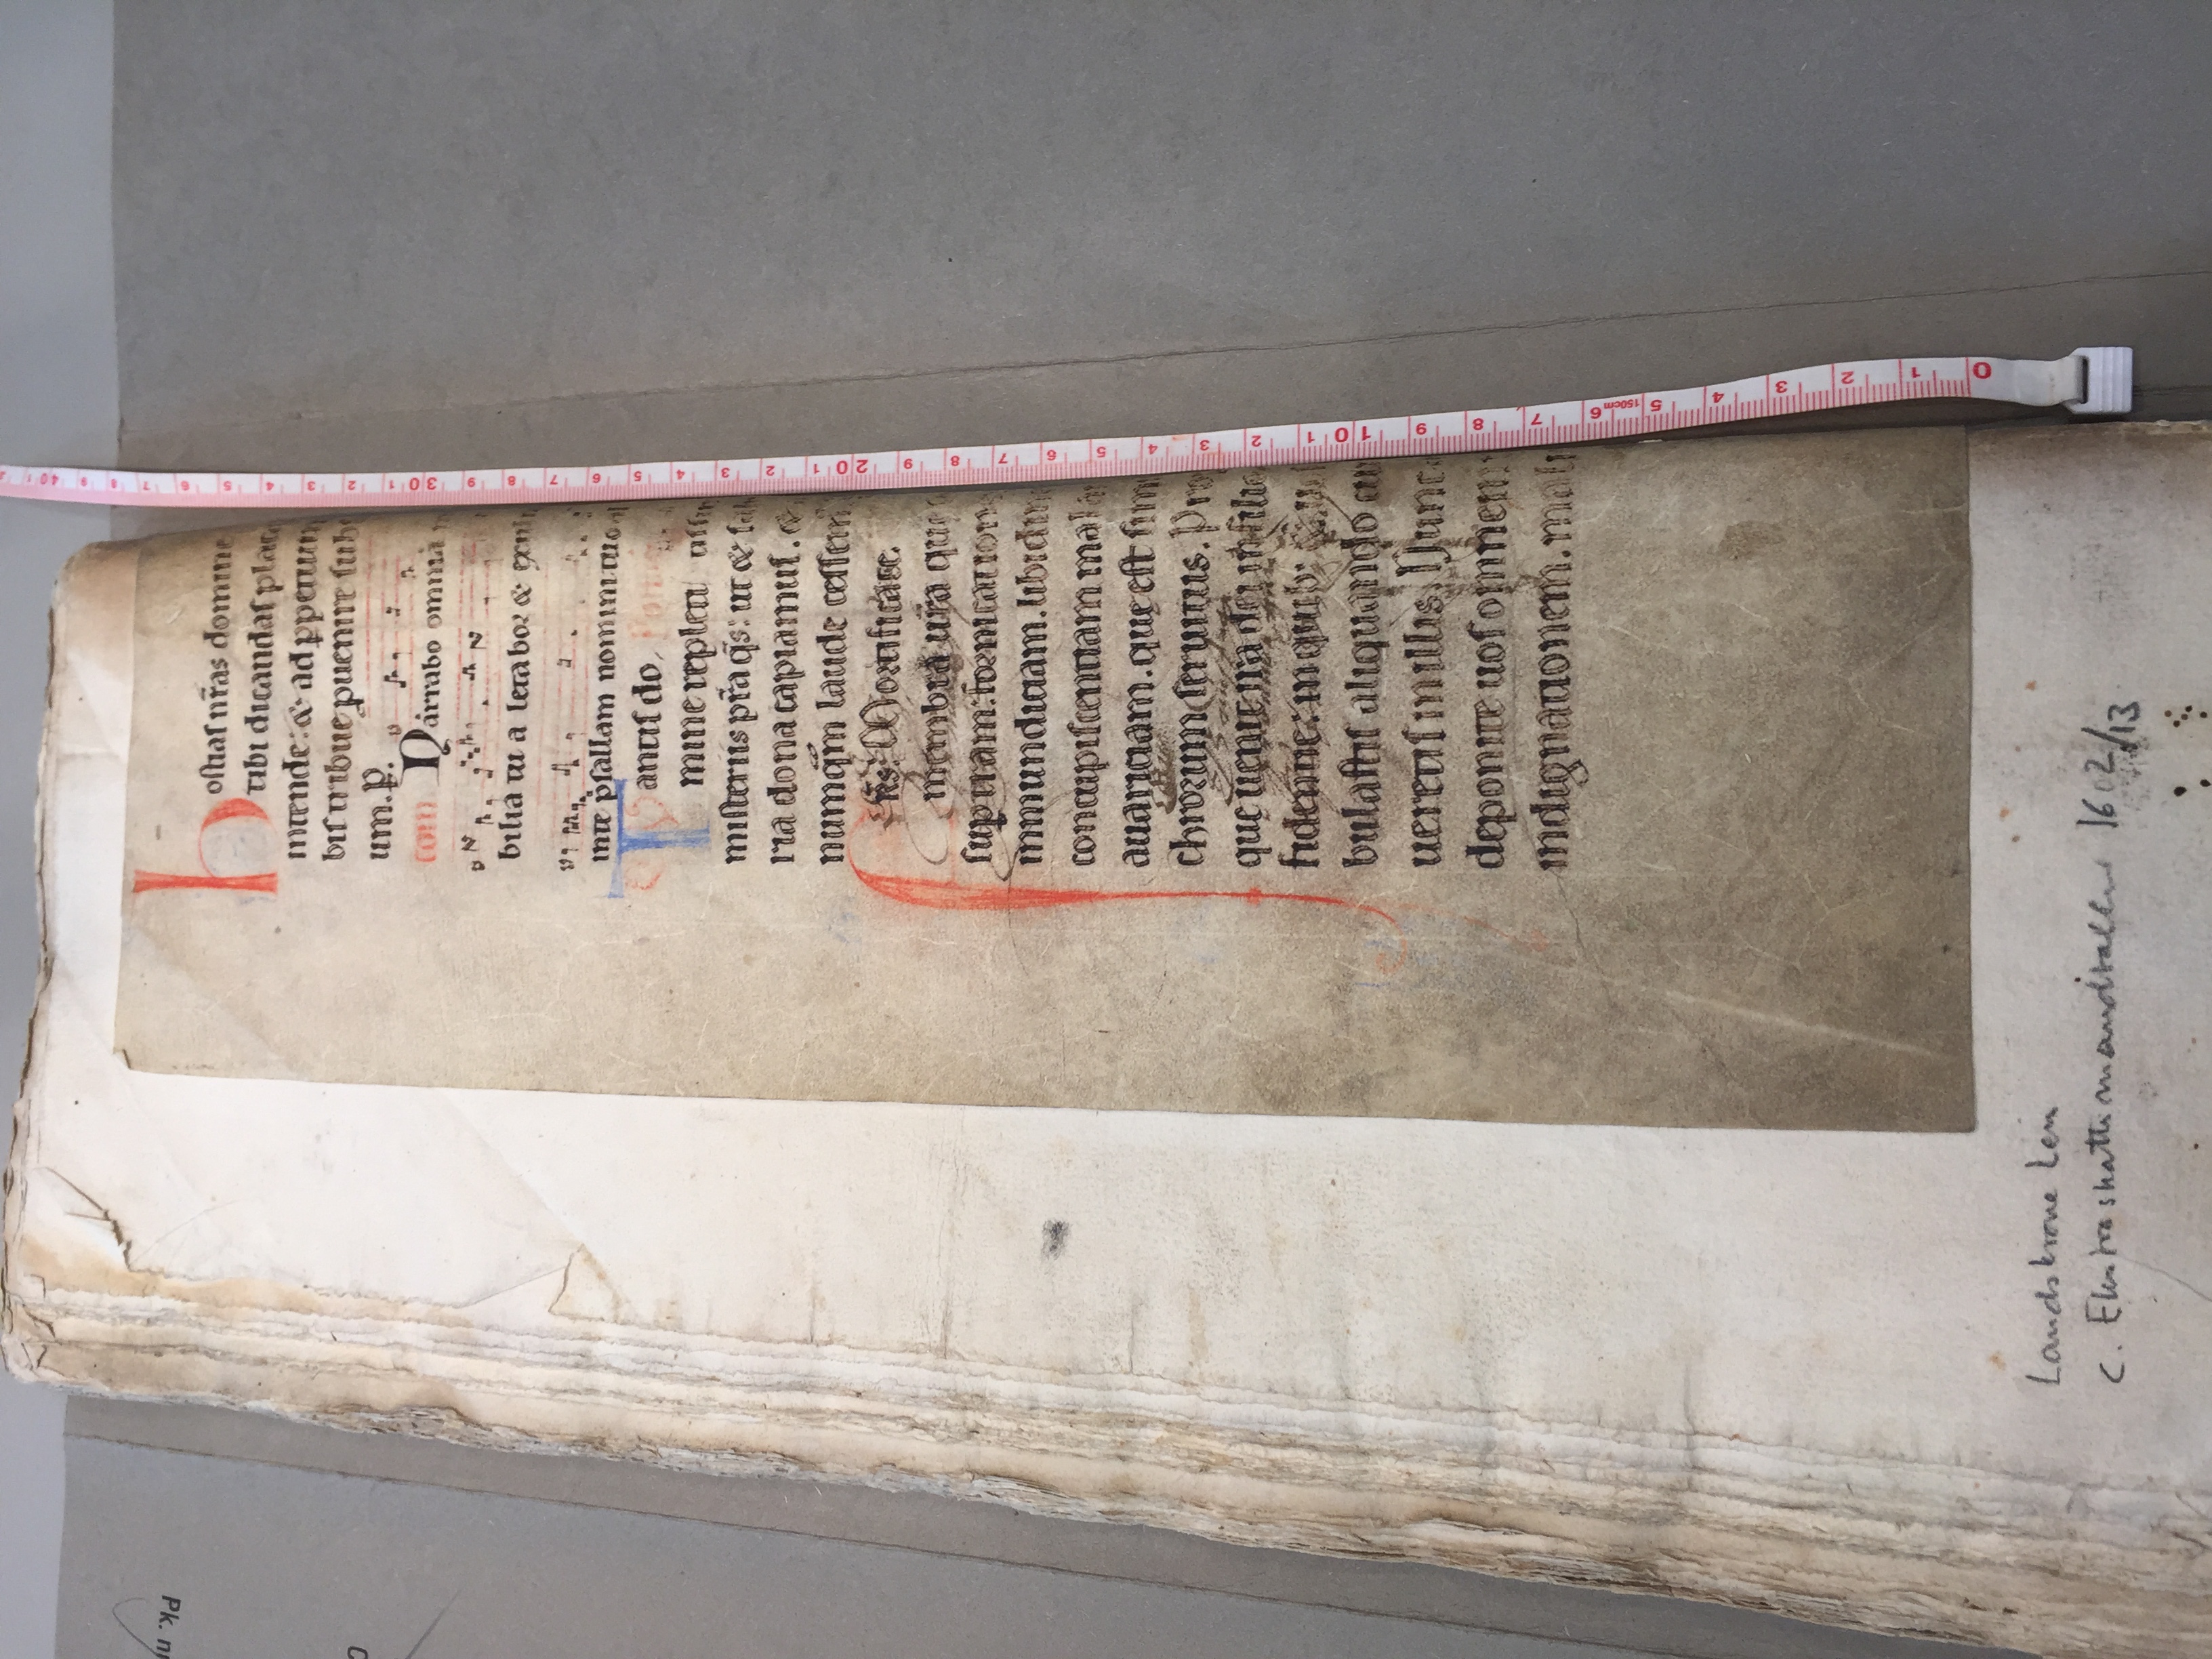 hostias nr̄as domine
tibi dicandas plac
intende: & ad ꝑpetuum
bis tribue ꝓuenire sub
um. P.
com Narrabo omnia m
bilia tu a letabor & exul
inte psallam nomini tuo
Tantis do
mine repleti
misteriis pr̄a qs̄: ut & sal
ria dona capiamus. &
numqm̄ laude cessem
Frs̄. Mortificate.
membra ur̄a que
suꝑ tram: fornication
inmundiciam. libidin
concupiscentiam mala
auariciam. que est sim
chrorum seruitus. Pro
que uenit ira dei in filio
fidentie: in quib; & u
bulastis aliquando cu
ueretis in illis. Nunc
deponite uos omnem
indignationem. mali
Landskrone Len
C. Ekstraskattemandtaller 1602/13
Pk. nr
0 1 2 3 4 5 150cm 6 7 8 9 10 1 2 3 4 5 6 7 8 9 20 1 2 3 4 5 6 7 8 9 30 1 2 3 4 5 6 7 8 9 40